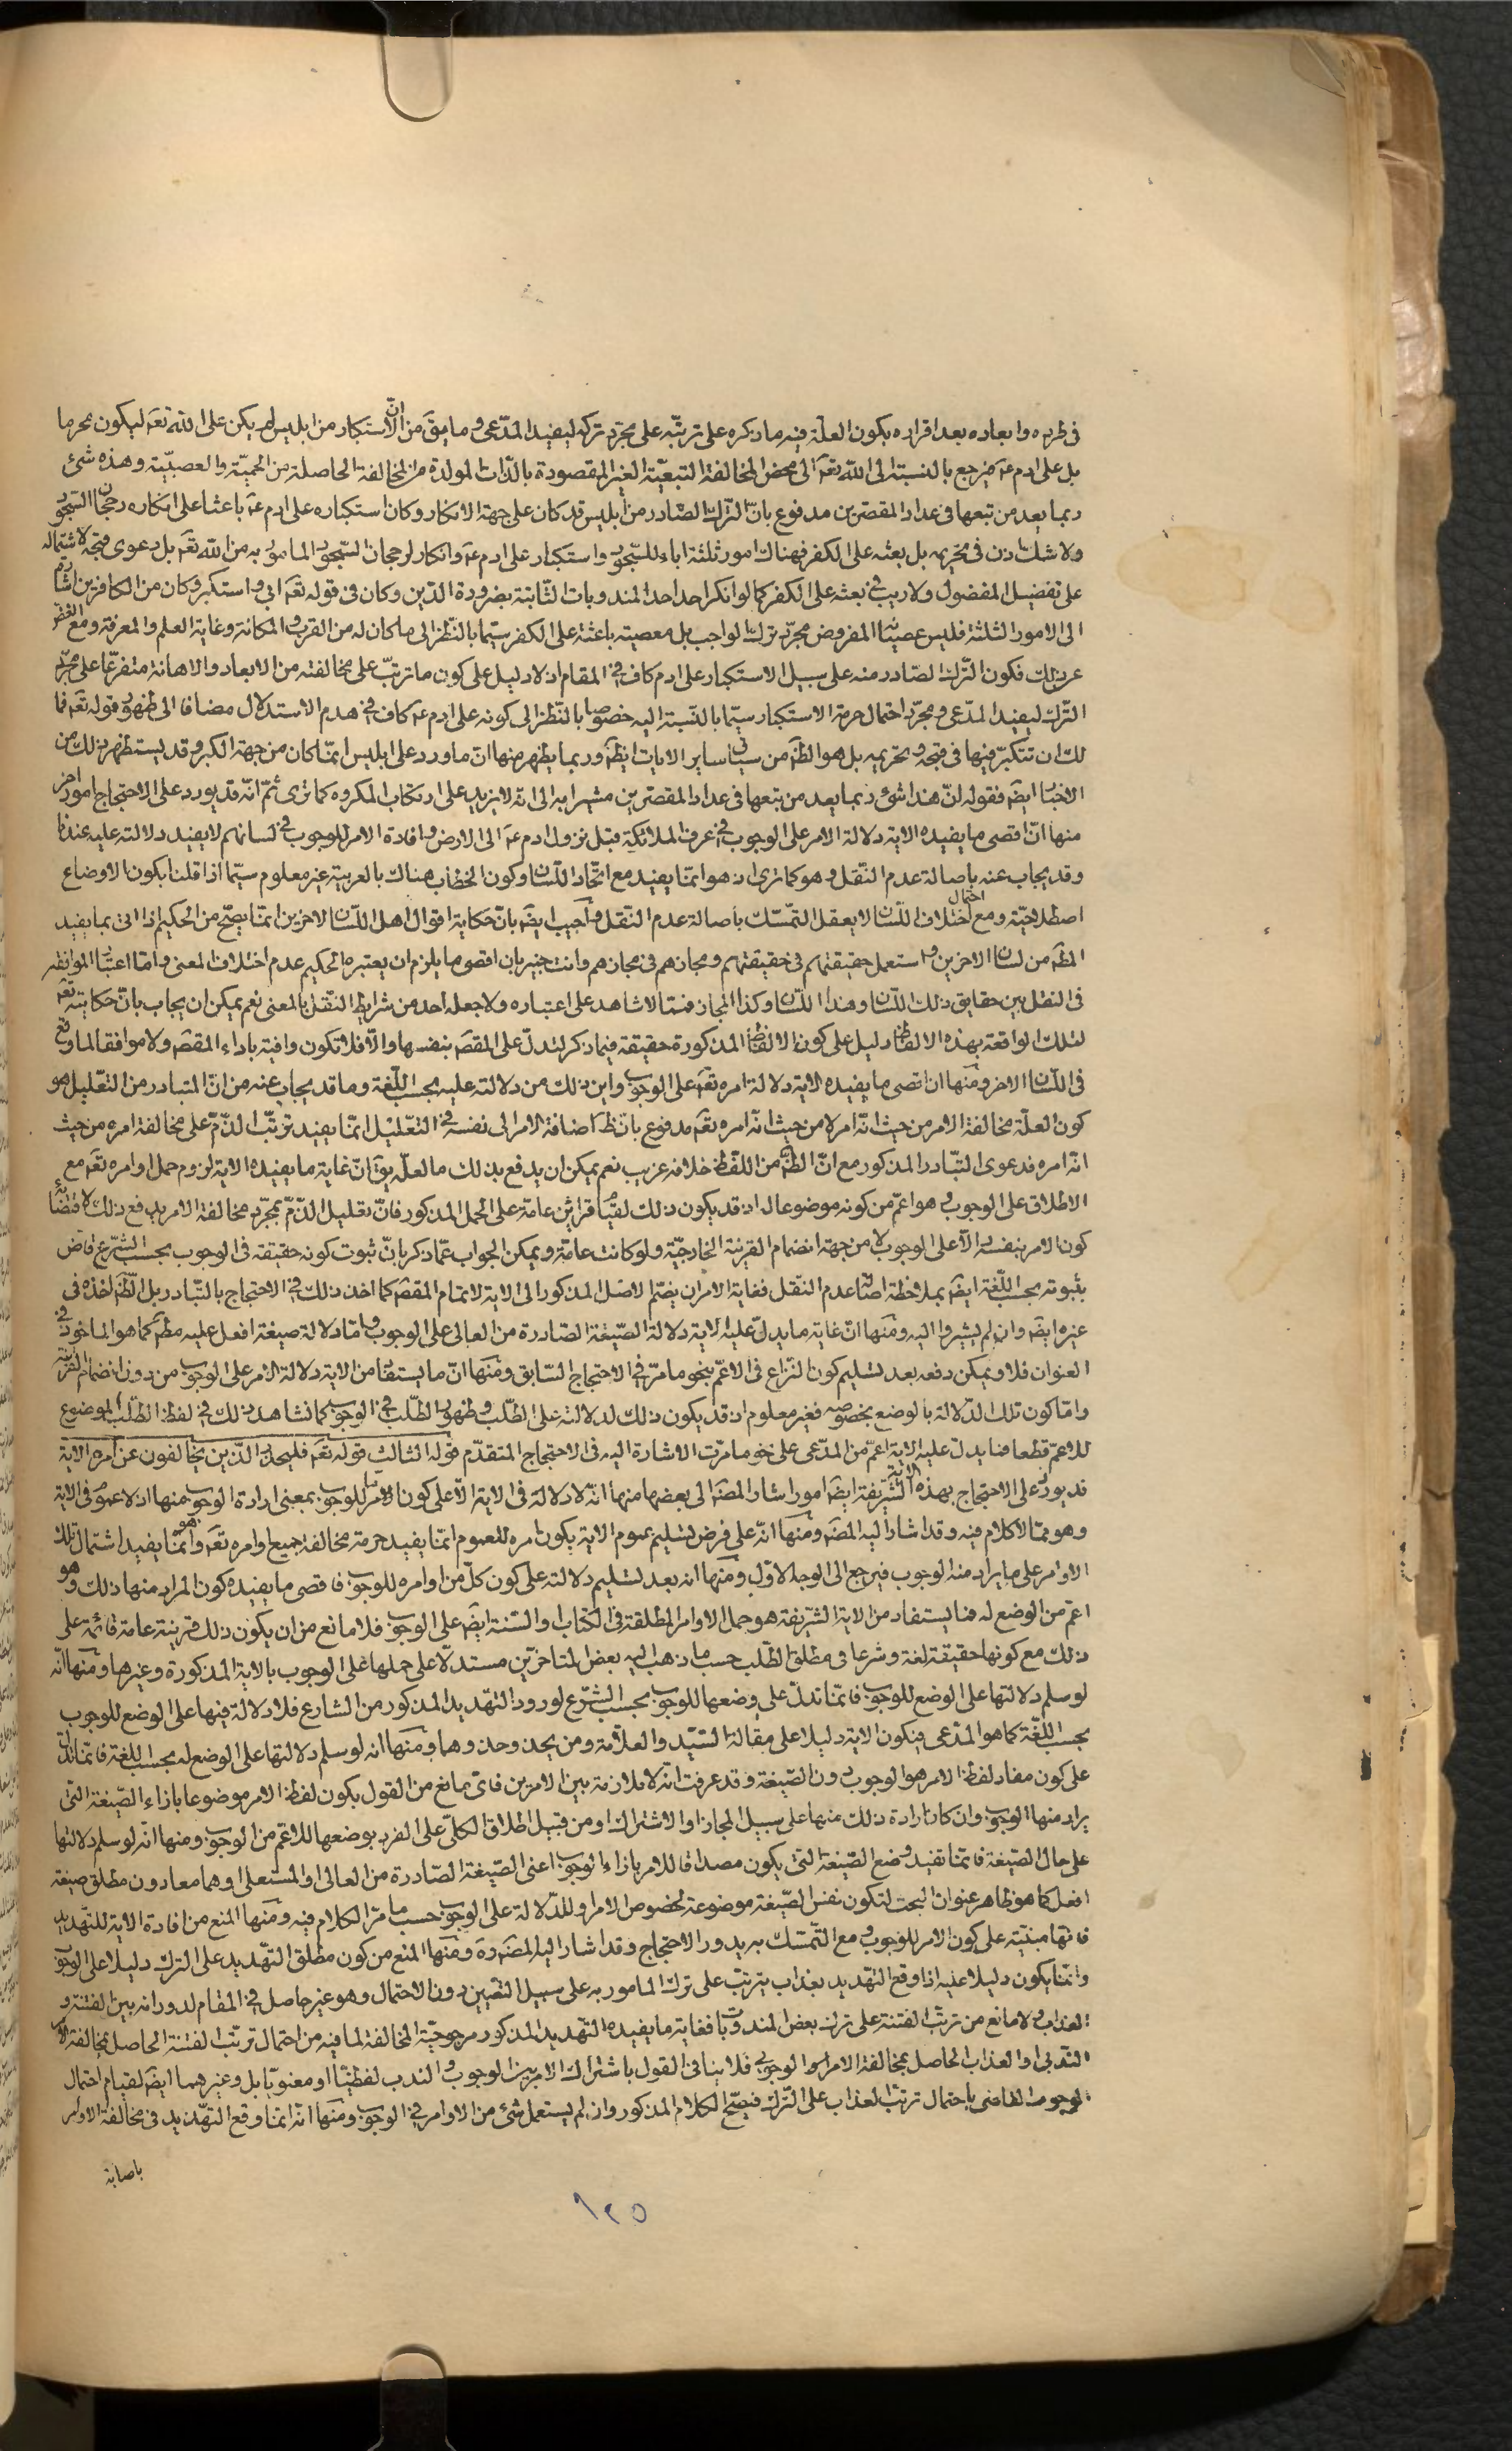 فى طرده وابعاده بعد اقراره بكون العلّة فيه ما ذكره على ترتبّه على مجرّد تركه ليفيد المدّعى وما يقَ من انّ الاستكبار من ابليس لم يكن على الله تعَم ليكون محرما
بل على ادم عَم فيرجع بالنسبة الى اللّه تعَم الى محض المخالفة التبعيّة الغير المقصودة بالذّات المولدة من المخالفة الحاصلة من الحميّة والعصبيّة وهذه شئ
ربما يعد من تبعها فى عداد المقصّرين مدفوع بانّ الترك الصّادر من ابليس قد كان على جهة الانكار وكان استكباره على ادم عَم باعثا على انكاره رجحان السّجود
ولا شك اذن فى تحريمه بل بعثه على الكفر فهناك امور ثلثة اباء للسّجود واستكبار على ادم عَم وانكار لرجحان السّجود المامور به من الله تعَم بل دعوى قبحه لاشتماله
على تفضيل المفضول ولا ريب فى بعثه على الكفر كما لو انكر احد احد المندوبات الثّابتة بضرورة الدّين وكان فى قوله تعَم ابى واستكبر وكان من الكافرين اشارة
الى الامور الثلثة فليس عصيان المفروض مجرّد ترك الواجب بل معصيته باعثة على الكفر سيّما بالنّظر الى ما كان له من القرب والمكانة وغاية العلم والمعرفة ومع الغضّ
عن ذلك فكون التّرك الصّادر منه على سبيل الاستكبار على ادم كاف فى المقام اذ لا دليل على كون ما ترتبّ على مخالفته من الابعاد والاهانة متفرّعا على مجرّد
التّرك ليفيد المدّعى ومجرّد احتمال حرمة الاستكبار سيّما بالنّسبة اليه خصوصا بالنّظر الى كونه على ادم عَم كاف فى هدم الاستدلال مضافا الى ظهور قوله تعَم فما
لك ان تتكبّر فيها فى قبحه وتحريمه بل هو الظَم من سياق ساير الايات ايضَم وربما يظهر منها انّ ما ورد على ابليس انمّا كان من جهة الكبر وقد يستظهر ذلك من
الاخبار ايضَم فقوله انّ هذا شئ ربما يعد من تبعها فى عداد المقصّرين مشيرا به الى انّه لا يزيد على ارتكاب المكروه كما ترى ثمّ انّه قد يورد على الاحتجاج امور اخر
منها انّ اقصى ما يفيده الاية دلالة الامر على الوجوب فى عرف الملائكة قبل نزول ادم عَم الى الارض وافادة الامر للوجوب فى لسانهم لا يفيد دلالته عليه عندنا
وقد يجاب عنه باصالة عدم النّقل وهو كما ترى اذ هو انمّا يفيد مع اتّحاد اللّسان وكون الخطاب هناك بالعربية غير معلوم سيّما اذا قلنا بكون الاوضاع
اصطلاحيّة ومع احتمال اختلاف اللّسان لا يعقل التّمسّك باصالة عدم النّقل واجيب ايضَم بانّ حكاية اقوال اهل اللّسان الاخرين انمّا يصحّ من الحكيم اذا اتى بما يفيد
المطَم من لسان الاخرين واستعمل حقيقتهم فى حقيقتهم ومجازهم فى مجازهم وانت خبير بان اقصى ما يلزم ان يعتبره الحكيم عدم اختلاف المعنى وامّا اعتبار الموافقة
فى النقل بين حقايق ذلك اللّسان وهذا اللّسان وكذا المجاز فممّا لا شاهد على اعتباره ولا جعله احد من شرايط النّقل بالمعنى نعم يمكن ان يجاب بانّ حكايته تعَم
لتلك الواقعة بهذه الالفاظ دليل على كون الالفاظ المذكورة حقيقة فيما ذكر لتدلّ على المقصَم بنفسها والّا فلا تكون وافية باداء المقصَم ولا موافقا لما وقع
فى اللّسان الاخر ومنها ان اقصى ما يفيده الاية دلالة امره تعَم على الوجوب واين ذلك من دلالته عليه بحسب اللّغة وما قد يجاب عنه من انّ المتبادر من التّعليل هو
كون العلّة مخالفة الامر من حيث انّه امر لا من حيث انّه امره تعَم مدفوع بانّ ظَم اضافة الامر الى نفسه فى التعّليل انمّا يفيد ترتبّ الذّم على مخالفة امره من حيث
انّه امره فدعوى التبّادر المذكور مع انّ الظَم من اللّفظ خلافه غريب نعم يمكن ان يدفع بذلك ما لعلّه يقَ انّ غاية ما يفيده الاية لزوم حمل اوامره تعَم مع
الاطلاق على الوجوب وهو اعمّ من كونه موضوعا له اذ قد يكون ذلك لقيام قرائن عامّة على الحمل المذكور فانّ تعليل الذّمّ بمجرّد مخالفة الامر يدفع ذلك لاقتضائه
كون الامر بنفسه دالّا على الوجوب لا من جهة انضمام القرينة الخارجيّة ولو كانت عامّة ويمكن الجواب عمّا ذكر بانّ ثبوت كونه حقيقة فى الوجوب بحسب الشّرع قاض
بثبوته بحسب اللّغة ايضَم بملاحظة اصالة عدم النّقل فغاية الامر ان يضمّ الاصل المذكور الى الاية لاتمام المقصَم كما اخذ ذلك فى الاحتجاج بالتّبادر بل الظَم اخذه فى
غيره ايضَم وان لم يشيروا اليه ومنها انّ غاية ما يدلّ عليه الاية دلالة الصّيغة الصّادرة من العالى على الوجوب وامّا دلالة صيغة افعل عليه مطَم كما هو الماخوذ فى
العنوان فلا ويمكن دفعه بعد تسليم كون النّزاع فى الاعمّ بنحو ما مرّ فى الاحتجاج السّابق ومنها انّ ما يستفاد من الاية دلالة الامر على الوجوب من دون انضمام القرينة
وامّا كون تلك الدّلالة بالوضع بخصوصه فغير معلوم اذ قد يكون ذلك لدلالته على الطّلب وظهور الطّلب فى الوجوب كما نشاهد ذلك فى لفظ الطّلب الموضوع
للاعمّ قطعا فما يدلّ عليه الاية اعمّ من المدّعى على نحو ما مرّت الاشارة اليه فى الاحتجاج المتقدّم قوله الثالث قوله تعَم فليحذر الذّين يخالفون عن امره الاية
قد يورد على الاحتجاج بهذه الاية الشّريفة ايضَم امور اشار المصَم الى بعضها منها انّه لا دلالة فى الاية الّا على كون الامر للوجوب بمعنى ارادة الوجوب منها اذ لا عموم فى الاية
وهو ممّا لا كلام فيه وقد اشار اليه المصَم ومنها انّه على فرض تسليم عموم الاية بكون امره للعموم انمّا يفيد حرمة مخالفة جميع اوامره تعَم وهو انمّا يفيد اشتمال تلك
الاوامر على ما يراد منه الوجوب فيرجع الى الوجه الاوّل ومنها انه بعد تسليم دلالته على كون كلّ من اوامره للوجوب فاقصى ما يفيده كون المراد منها ذلك وهو
اعمّ من الوضع له فما يستفاد من الاية الشّريفة هو حمل الاوامر المطلقة فى الكتاب والسّنة ايضَم على الوجوب فلا مانع من ان يكون ذلك قرينة عامة قائمة على
ذلك مع كونها حقيقة لغة وشرعا فى مطلق الطّلب حسب ما ذهب اليه بعض المتاخرّين مستدلّا على حملها على الوجوب بالاية المذكورة وغيرها ومنها انّه
لو سلم دلالتها على الوضع للوجوب فانمّا تدلّ على وضعها للوجوب بحسب الشّرع لورود التّهديد المذكور من الشارع فلا دلالة فيها على الوضع للوجوب
بحسب اللّغة كما هو المدّعى فيكون الاية دليلا على مقالة السّيّد والعلاّمة ومن يحذو حذوهما ومنها انه لو سلم دلالتها على الوضع له بحسب اللغة فانمّا تدلّ
على كون مفاد لفظ الامر هو الوجوب دون الصّيغة وقد عرفت انّه لا ملازمة بين الامرين فاىّ مانع من القول بكون لفظ الامر موضوعا بازاء الصّيغة التّى
يراد منها الوجوب وان كان ارادة ذلك منها على سبيل المجاز او الاشتراك او من قبيل اطلاق الكلّى على الفرد بوضعها للاعمّ من الوجوب ومنها انّه لو سلم دلالتها
على حال الصّيغة فانمّا تفيد وضع الصّيغة التّى يكون مصداقا للامر بازاء الوجوب اعنى الصّيغة الصّادرة من العالى او المستعلى وهما معا دون مطلق صيغة
افعل كما هو ظاهر عنوان البحث لتكون نفس الصّيغة موضوعة لخصوص الامر وللدّلالة على الوجوب حسب ما مرّ الكلام فيه ومنها المنع من افادة الاية للتّهديد
فانّها مبنيّة على كون الامر للوجوب ومع التّمسّك به يدور الاحتجاج وقد اشار اليه المصَم رهَ ومنها المنع من كون مطلق التّهديد على الترك دليلا على الوجوب
وانمّا يكون دليلا عليه اذا وقع التّهديد بعذاب يترتبّ على ترك المامور به على سبيل التّعيين دون الاحتمال وهو غير حاصل فى المقام لدورانه بين الفتنة و
العذاب ولا مانع من ترتبّ الفتنة على ترك بعض المندوبات فغاية ما يفيده التّهديد المذكور مرجوحيّة المخالفة لما فيه من احتمال ترتبّ الفتنة الحاصل بمخالفة الامر
النّدبى او العذاب الحاصل بمخالفة الامر الوجوبى فلا ينافى القول باشتراك الامر بين الوجوب والندب لفظيّا او معنويّا بل وغيرهما ايضَم لقيام احتمال
الوجوب القاضى باحتمال ترتبّ العذاب على التّرك فيصحّ الكلام المذكور وان لم يستعمل شئ من الاوامر فى الوجوب ومنها انّه انمّا وقع التّهديد فى مخالفة الاوامر
باصابة
١٢٥